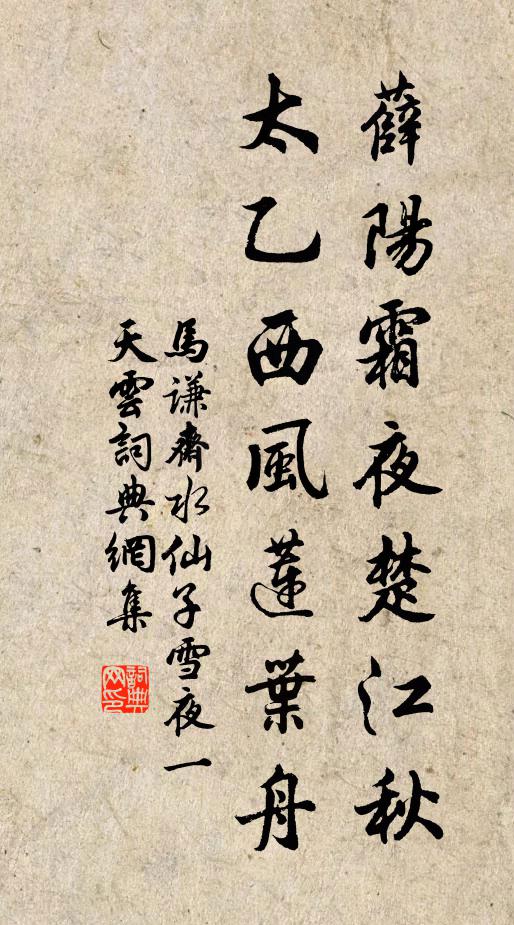 薛陽霜夜楚江秋
太乙西風蓮葉舟
馬謙齋水仙子雪夜一
天雲詞典網集
詞典
网印